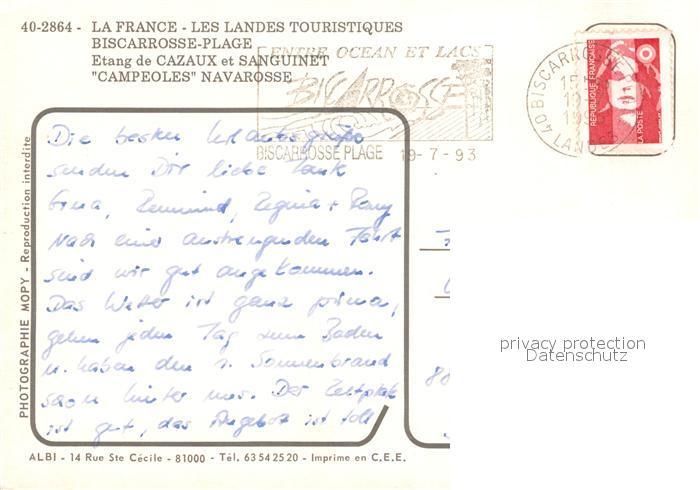 40-2864 - LA FRANCE - LES LANDES TOURISTIQUES
BISCARROSSE-PLAGE
Etang de CAZAUX et SANGUINET
"CAMPEOLES" NAVAROSSE
ENTRE OCEAN ET LACS
BISCARROSSE
BISCARROSSE PLAGE 19-7-93
40 BISCARROSSE
LANDES
RÉPUBLIQUE FRANÇAISE
LA POSTE
PHOTOGRAPHIE MOPY - Reproduction interdite
Die besten Urlaubsgrüße
senden Dir liebe Tante
Erna, Regina +
Nach einer anstrengenden Fahrt
sind wir gut angekommen.
Das Wetter ist ganz prima,
gehen jeden Tag zum Baden
u. haben den 1. Sonnenbrand
schon hinter uns. Der Zeltplatz
ist gut, das Angebot ist toll
privacy protection
Datenschutz
ALBI - 14 Rue Ste Cécile - 81000 - Tél. 63 54 25 20 - Imprime en C.E.E.